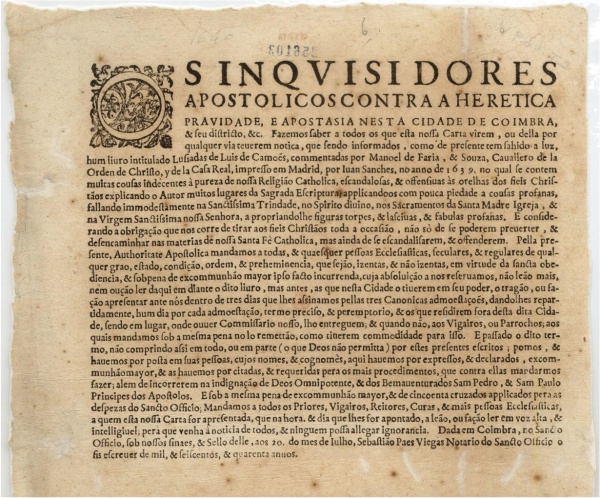 OS INQVISIDORES
APOSTOLICOS CONTRA A HERETICA
PRAVIDADE, E APOSTASIA NESTA CIDADE DE COIMBRA,
& seu districto, &c. Fazemos saber a todos os que esta nossa Carta virem, ou della por
qualquer via teuerem notica, que sendo informados, como de presente tem sahido a luz,
hum liuro intitulado Lusiadas de Luis de Camoẽs, commentadas por Manoel de Faria, & Souza, Cauallero de la
Orden de Christo, y de la Casa Real, impresso em Madrid, por Iuan Sanches, no anno de 1639. no qual se contem
muitas cousas indecentes à pureza de nossa Religião Catholica, escandalosas, & offensiuas às orelhas dos fieis Chris-
tãos explicando o Autor muitos lugares da Sagrada Escriptura, applicandoos com pouca piedade a cousas profanas,
fallando immodestamente na Sanctissima Trindade, no Spirito diuino, nos Sacramentos da Santa Madre Igreja, &
na Virgem Sanctissima nossa Senhora, apropriandolhe figuras torpes, & lasciuas, & fabulas profanas. E conside-
rando a obrigação que nos corre de tirar aos fieis Christãos toda a occasião, não só de se poderem preuerter, &
desencaminhar nas materias de nossa Santa Fè Catholica, mas ainda de se escandalisarem, & offenderem. Pella pre-
sente, Authoritate Apostolica mandamos a todas, & quaesquer pessoas Ecclesiasticas, seculares, & regulares de qual-
quer grao, estado, condição, ordem, & preheminencia, que sejão, izentas, & não izentas, em virtude da sancta obe-
diencia, & sobpena de excommunhão mayor ipso facto incurrenda, cuja absoluição a nos reseruamos, não leão mais,
nem oução ler daqui em diante o dito liuro, mas antes, as que nesta Cidade o tiuerem em seu poder, o tragão, ou fa-
ção apresentar ante nòs dentro de tres dias que lhes assinamos pellas tres Canonicas admoestações, dandolhes repar-
tidamente, hum dia por cada admoestação, termo preciso, & peremptorio, & os que residirem fora desta dita Cida-
de, sendo em lugar, onde ouuer Commissario nosso, lho entreguem; & quando não, aos Vigairos, ou Parrochos; aos
quais mandamos sob a mesma pena no lo remettão, como tiuerem commodidade para isso. E passado o dito ter-
mo, não comprindo assi em todo, ou em parte (o que Deos não permita) por estes presentes escritos; pomos, &
hauemos por posta em suas pessoas, cujos nomes, & cognomẽs, aqui hauemos por expressos, & declarados, excom-
munhão mayor, & as hauemos por citadas, & requeridas pera os mais procedimentos, que contra ellas mandarmos
fazer; alem de incorrerem na indignação de Deos Omnipotente, & dos Bemauenturados Sam Pedro, & Sam Paulo
Principes dos Apostolos. E sob a mesma pena de excommunhão mayor, & de cincoenta cruzados applicados pera as
despezas do Sancto Officio; Mandamos a todos os Priores, Vigairos, Reitores, Curas, & mais pessoas Ecclesiasticas,
a quem esta nossa Carta for apresentada, que na hora, & dia que lhes for apontado, a leão, ou fação ler em voz alta, &
intelligiuel; pera que venha à noticia de todos, & ninguem possa allegar ignorancia. Dada em Coimbra, no Sancto
Officio, sob nossos sinaes, & Sello delle, aos 20. do mes de Iulho, Sebastião Paes Viegas Notario do Sancto Officio o
fis escreuer de mil, & seiscentos, & quarenta annos.